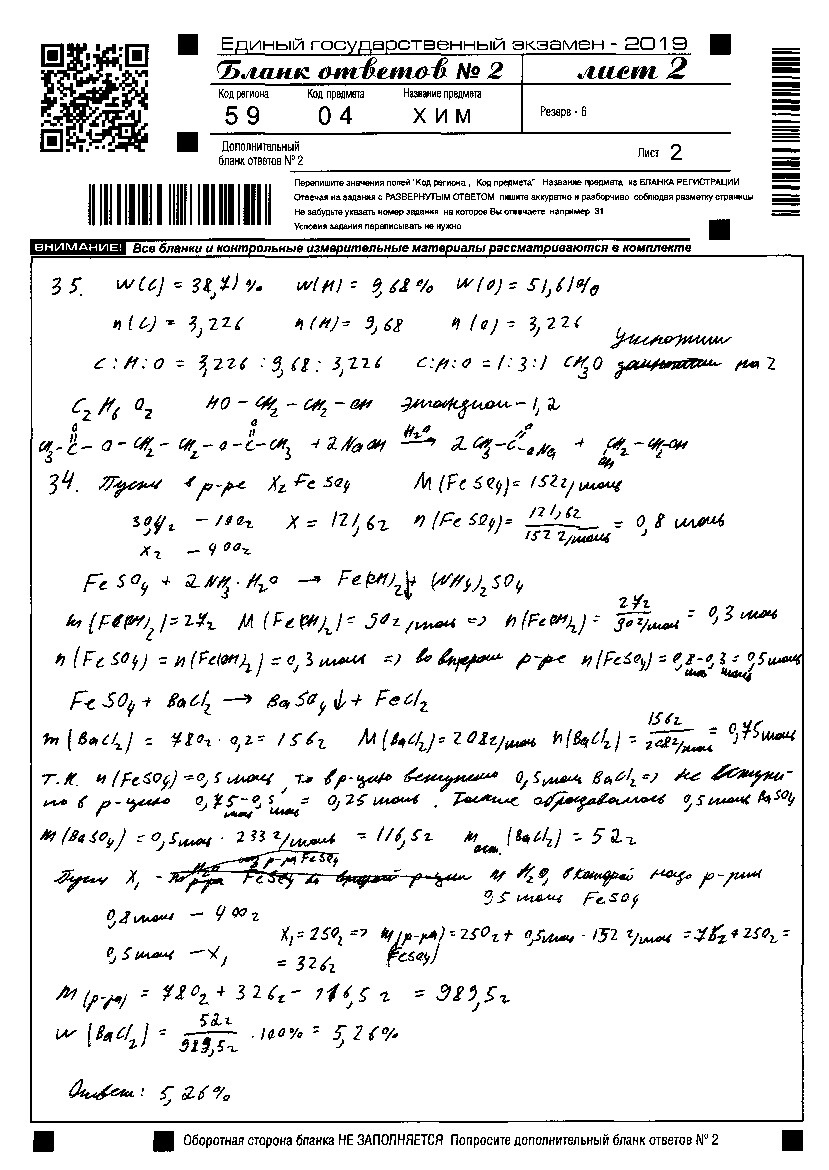 Единый государственный экзамен - 2019
Бланк ответов № 2 лист 2
Код региона Код предмета Название предмета
59 04 ХИМ Резерв - 6
Дополнительный
бланк ответов № 2
Лист 2
Перепишите значения полей "Код региона , Код предмета" Название предмета из БЛАНКА РЕГИСТРАЦИИ
Отвечая на задания с РАЗВЕРНУТЫМ ОТВЕТОМ пишите аккуратно и разборчиво соблюдая разметку страницы
Не забудьте указать номер задания на которое Вы отвечаете например 31
Условия задания переписывать не нужно
ВНИМАНИЕ! Все бланки и контрольные измерительные материалы рассматриваются в комплекте
35. W(C) = 38,71% W(H) = 9,68% W(O) = 51,61%
n(C) = 3,226 n(H) = 9,68 n(O) = 3,226
Умножим
C:H:O = 3,226 : 9,68 : 3,226 C:H:O = 1:3:1 CH3O на 2
C2H6O2 HO-CH2-CH2-OH этандиол-1,2
CH3-C(=O)-O-CH2-CH2-O-C(=O)-CH3 + 2NaOH H2O→ 2CH3-C(=O)-ONa + CH2(OH)-CH2OH
34. Пусть в р-ре X г FeSO4 M(FeSO4) = 152г/моль
30,4г - 100г X = 121,6г n(FeSO4) = 121,6г / 152г/моль = 0,8 моль
Xг - 400г
FeSO4 + 2NH3·H2O → Fe(OH)2↓ + (NH4)2SO4
m(Fe(OH)2) = 27г M(Fe(OH)2) = 90г/моль => n(Fe(OH)2) = 27г / 90г/моль = 0,3 моль
n(FeSO4) = n(Fe(OH)2) = 0,3 моль => во втором р-ре n(FeSO4) = 0,8 моль - 0,3 моль = 0,5 моль
FeSO4 + BaCl2 → BaSO4↓ + FeCl2
m(BaCl2) = 780г · 0,2 = 156г M(BaCl2) = 208г/моль n(BaCl2) = 156г / 208г/моль = 0,75 моль
Т.к. n(FeSO4) = 0,5 моль, то в р-цию вступило 0,5 моль BaCl2 => не вступи-
ло в р-цию 0,75 моль - 0,5 моль = 0,25 моль. Также образовалось 0,5 моль BaSO4
m(BaSO4) = 0,5 моль · 233 г/моль = 116,5г m ост. (BaCl2) = 52г
Пусть X1 - m H2O, в которой надо р-рить
0,5 моль FeSO4
0,8 моль - 400г
0,5 моль - X1 X1 = 250г => m(р-ра FeSO4) = 250г + 0,5 моль · 152 г/моль = 76г + 250г =
= 326г
m(р-ра) = 780г + 326г - 116,5г = 989,5г
w(BaCl2) = 52г / 989,5г · 100% = 5,26%
Ответ: 5,26%
Оборотная сторона бланка НЕ ЗАПОЛНЯЕТСЯ Попросите дополнительный бланк ответов № 2